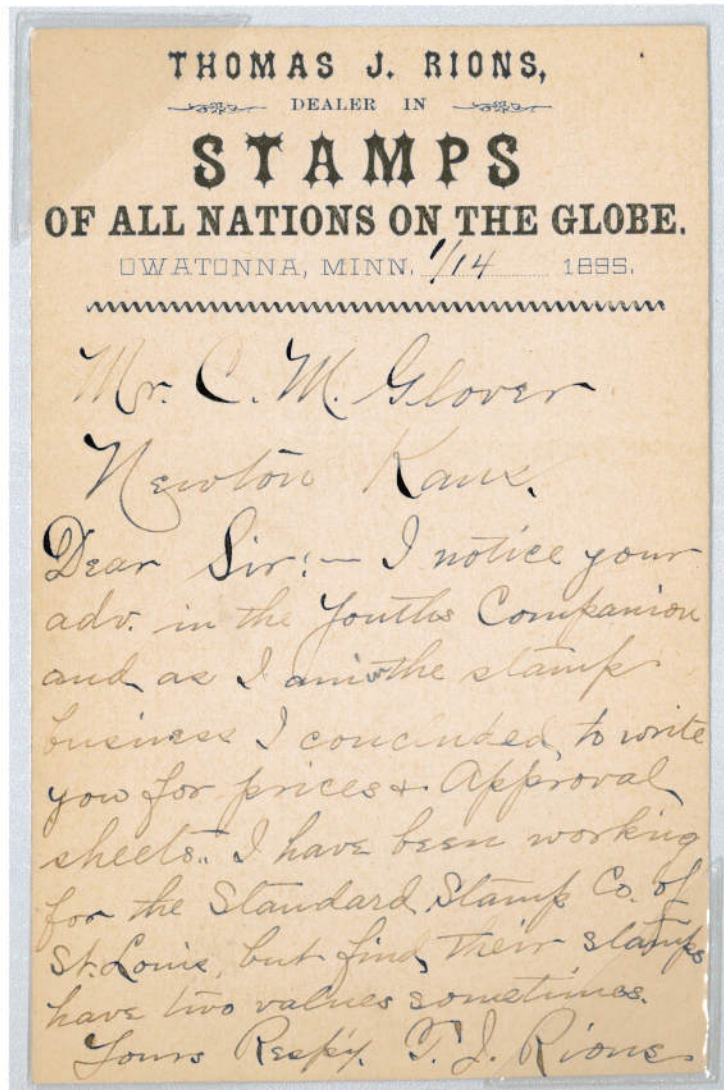 THOMAS J. RIONS,
DEALER IN
STAMPS
OF ALL NATIONS ON THE GLOBE.
OWATONNA, MINN. 1/14 1895.
Mr. C. M. Glover
Newton Kans.
Dear Sir:— I notice your
adv. in the Youths Companion
and as I am in the stamp
business I concluded to write
you for prices & Approval
sheets. I have been working
for the Standard Stamp Co. of
St. Louis, but find their stamps
have two values sometimes.
Yours Resp'y. T. J. Rions.